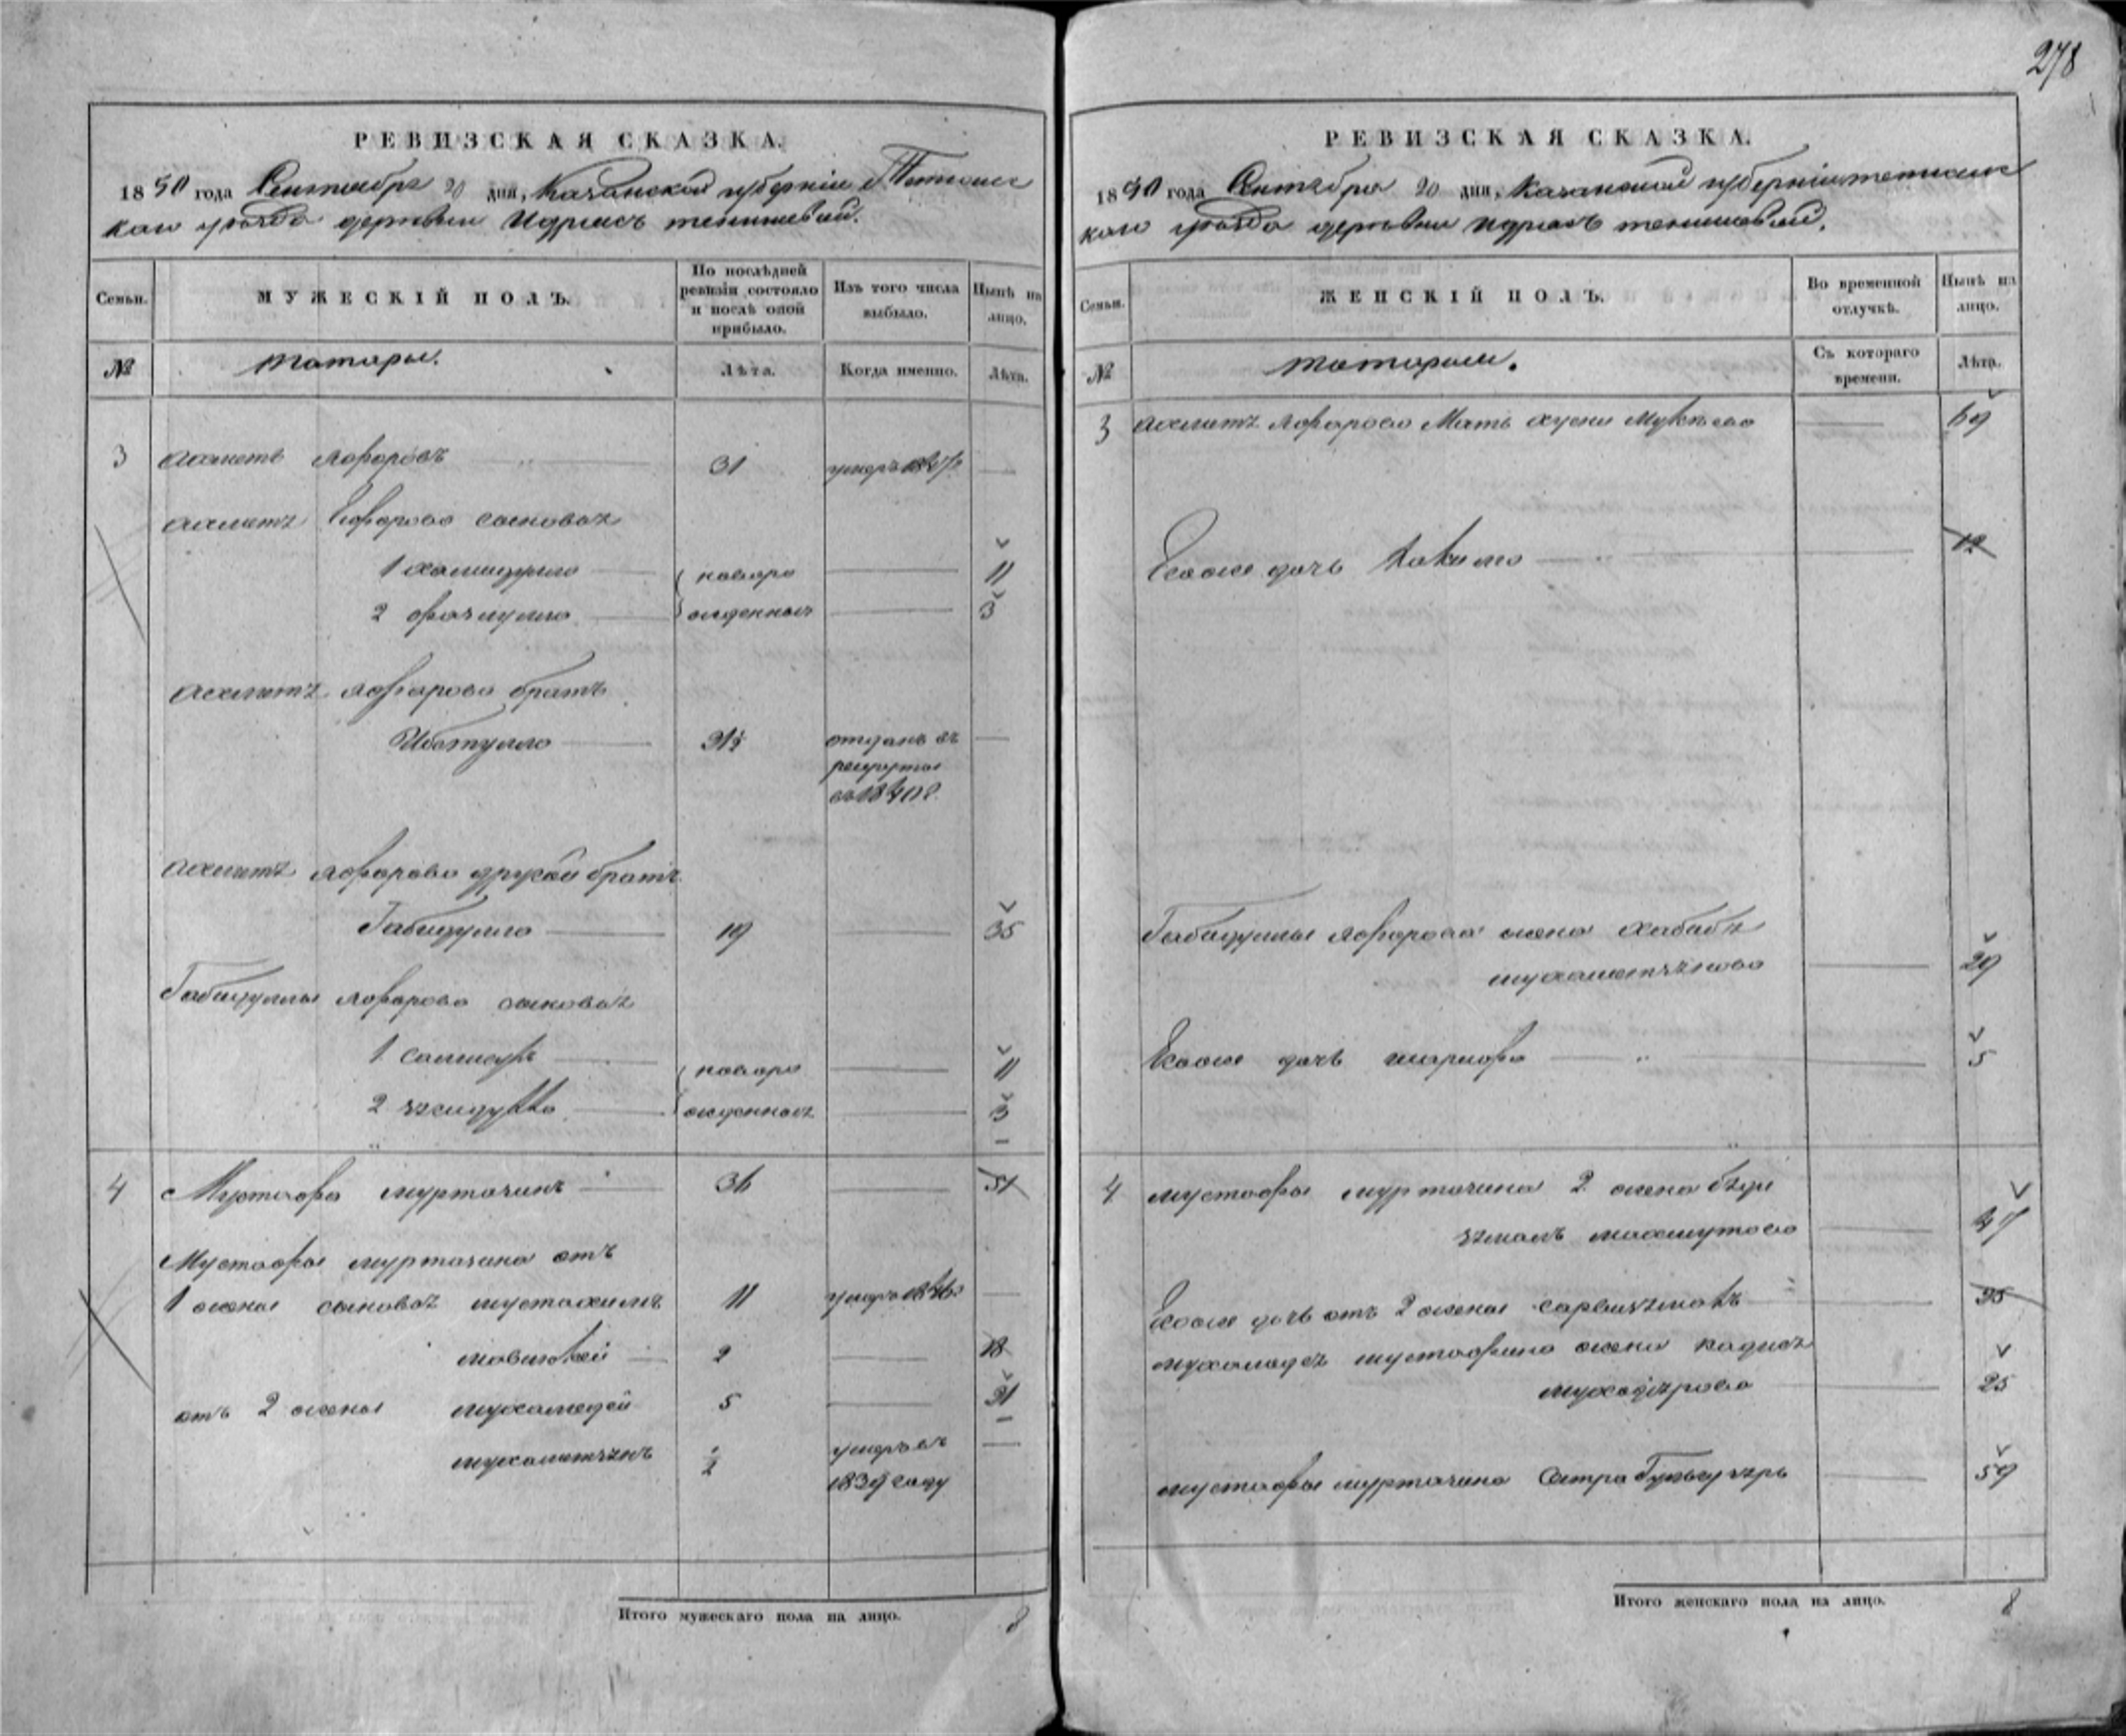 278
РЕВИЗСКАЯ СКАЗКА.
1850 года Сентября 20 дня, Казанской губерніи Тетюшс
каго уѣзда деревни Идрясъ тенишевай.
Семьи. МУЖЕСКІЙ ПОЛЪ. По послѣдней ревизіи состояло и послѣ оной прибыло. Изъ того числа выбыло. Нынѣ на лицо.
№ татары. Лѣта. Когда именно. Лѣта.
3 Ахметъ Яфаровъ 31 умеръ 1847
Ахметъ Яфарова сыновья
1 Хамидулла новоро 11
2 Фазлулла жденныя 3
Ахметъ Яфарова братъ
31½ отданъ въ
рекруты
въ 1840 г.
Ахметъ Яфарова другой братъ
Габидулла 19 35
Габидуллы Яфарова сыновья
1 новоро 11
2 жденныя 3
4 Мустафа муртазинъ 36 51
Мустафы муртазина отъ
1 жены сыновья мустакимъ 11 умеръ 1846
2 18
отъ 2 жены мухамедей 5 21
мухаметзянъ ½ умеръ въ
1839 году
Итого мужескаго пола на лицо. 8
РЕВИЗСКАЯ СКАЗКА.
1850 года Сентября 20 дня, Казанской губерніи тетюшс
каго уѣзда деревни Идрясъ тенишевай.
Семьи. ЖЕНСКІЙ ПОЛЪ. Во временной отлучкѣ. Нынѣ на лицо.
№ татарки. Съ котораго времени. Лѣта.
3 Ахметъ Яфарова Мать 69
Егоже дочь Хакима 12
Габидуллы Яфарова жена Хабибя
мухаметзянова 29
Егоже дочь шарифа 5
4 мустафы муртазина 2 жена бѣди
махмутова 47
Егоже дочь отъ 2 жены 25
мухамедея мустафина жена
25
мустафы муртазина 59
Итого женскаго пола на лицо. 8